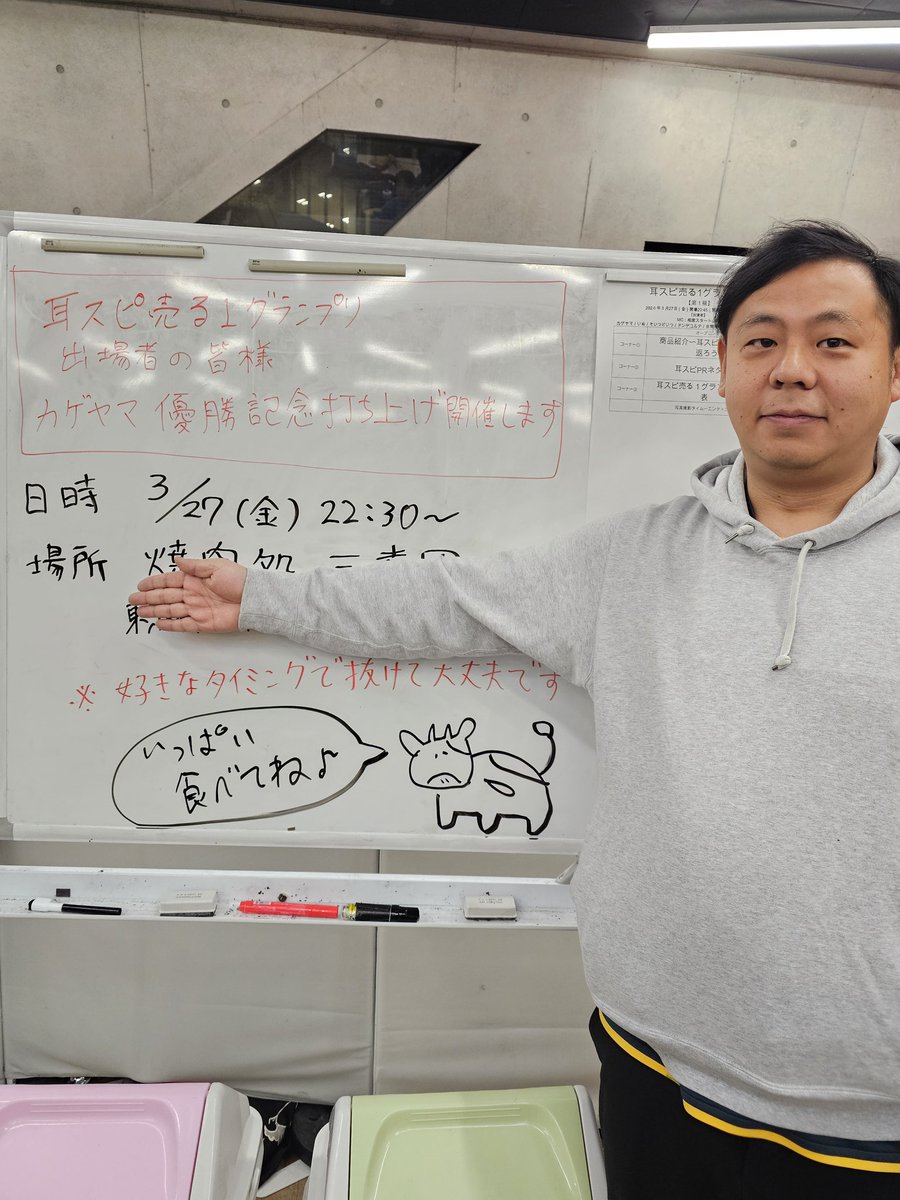 耳スピ売る1グランプリ
出場者の皆様
カゲヤマ 優勝記念打ち上げ開催します
日時 3/27(金) 22:30〜
場所 焼肉処
※ 好きなタイミングで抜けて大丈夫です
いっぱい
食べてね♪
耳スピ売る1グラ
【第1稿】
コーナー①
商品紹介〜耳スピ
返ろう
コーナー②
耳スピPRネタ
コーナー③
耳スピ売る1グラ
表